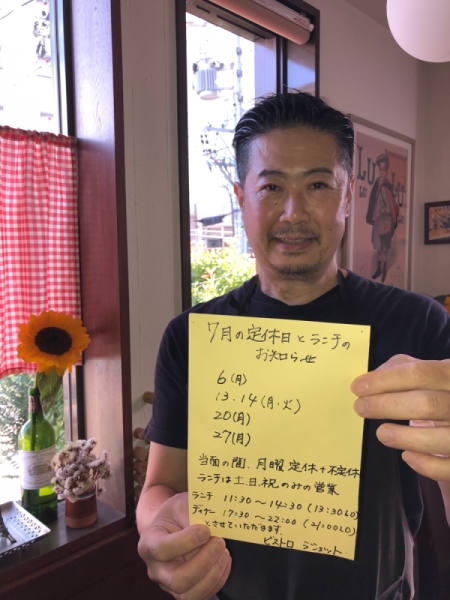 7月の定休日とランチの
お知らせ
6(月)
13.14(月・火)
20(月)
27(月)
当面の間、月曜定休+不定休
ランチは土.日.祝のみの営業
ランチ 11:30~14:30(13:30LO)
ディナー 17:30~22:00(21:00LO)
とさせていただきます.
ビストロ
LULU